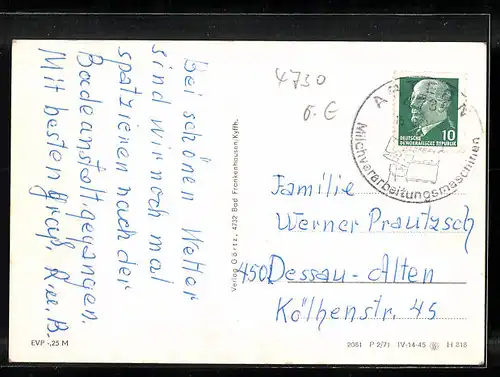 Bei schönen Wetter
sind wir noch mal
spatzieren nach der
Badeanstalt gegangen.
Mit besten Gruß, R. u. B.
4730
6.€
DEUTSCHE
DEMOKRATISCHE REPUBLIK
10
Milchverarbeitungsmaschinen
Familie
Werner Prautzsch
4501 Dessau-Alten
Köthenstr. 45
Verlag Görtz, 4732 Bad Frankenhausen/Kyffh.
EVP -,25 M
2061 P 2/71 IV-14-45 H 818